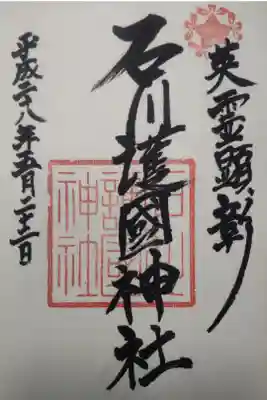 英霊顕彰
石川護國神社
平成二十八年五月二十二日
石川
護国
神社